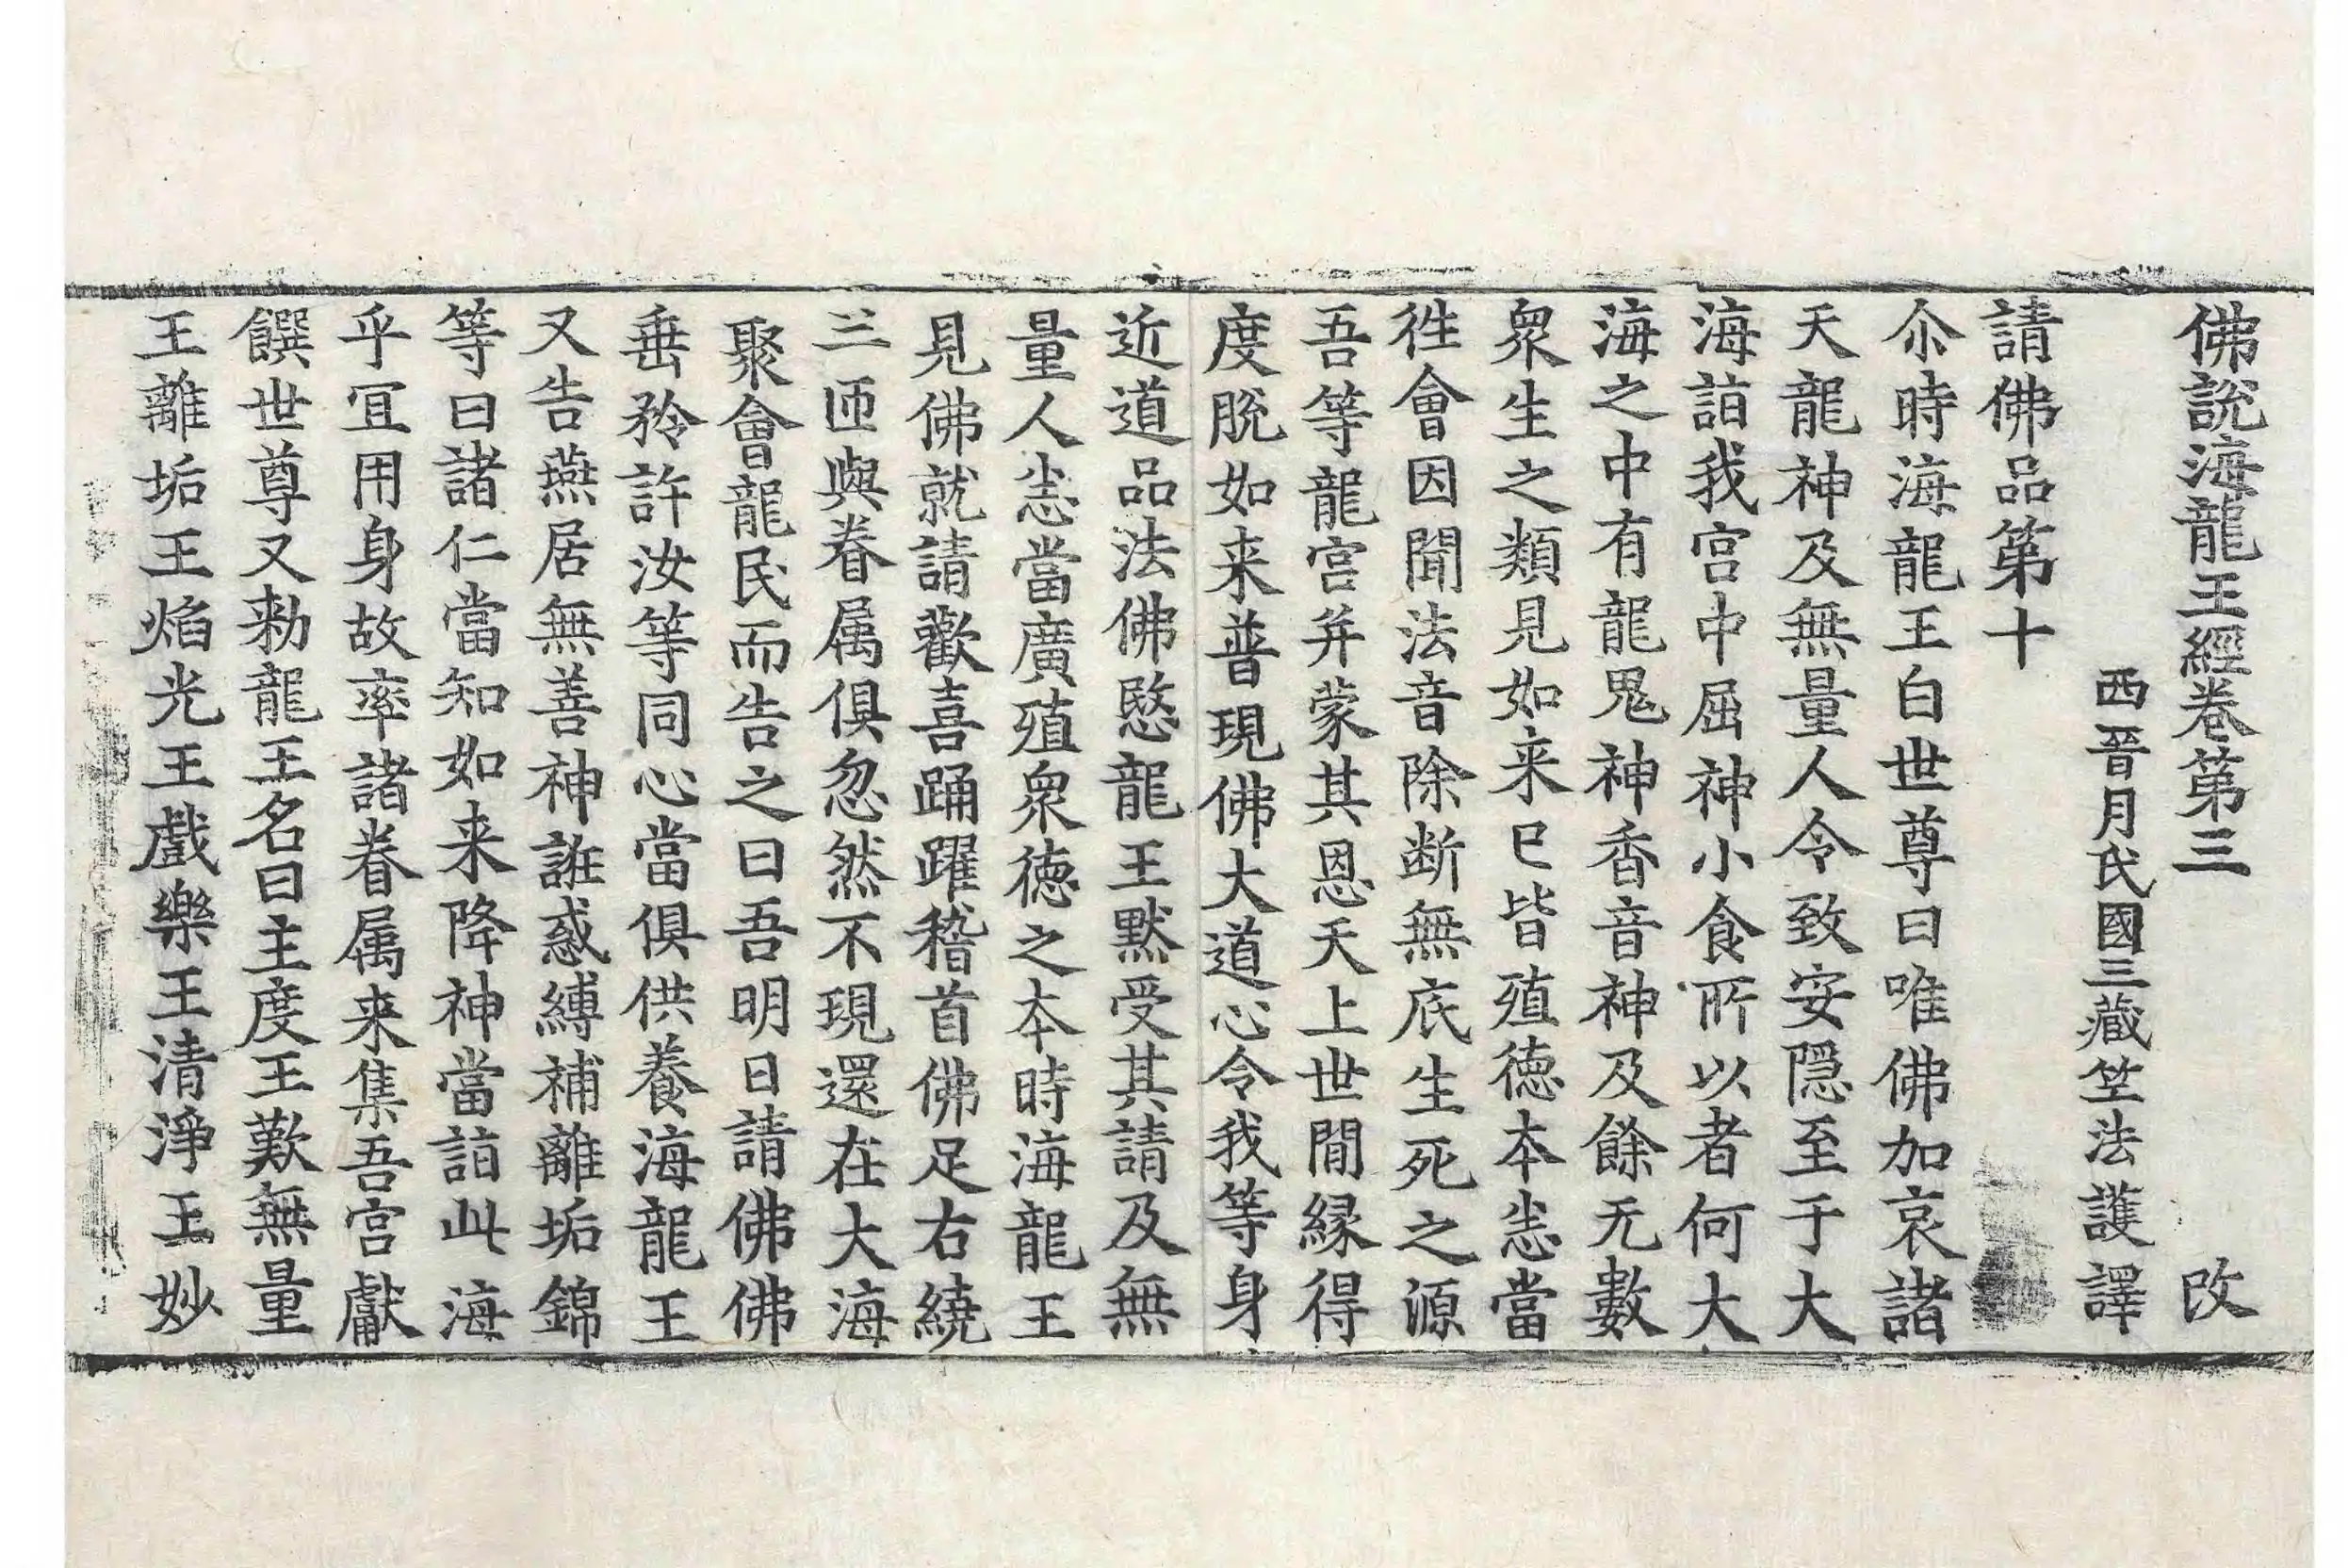 佛說海龍王經卷第三　改
西晉月氏國三藏竺法護譯
請佛品第十
尒時海龍王白世尊曰唯佛加哀諸
天龍神及無量人令致安隱至于大
海詣我宮中屈神小食所以者何大
海之中有龍鬼神香音神及餘无數
衆生之類見如来已皆殖徳本悉當
徃會因聞法音除断無底生死之源
吾等龍宮并蒙其恩天上世閒縁得
度脫如来普現佛大道心令我等身
近道品法佛愍龍王黙受其請及無
量人悉當廣殖衆徳之本時海龍王
見佛就請歡喜踊躍稽首佛足右繞
三匝與眷属俱忽然不現還在大海
聚會龍民而告之曰吾明日請佛佛
垂矜許汝等同心當俱供養海龍王
又告燕居無善神誑惑縛補離垢錦
等曰諸仁當知如来降神當詣此海
乎冝用身故率諸眷属来集吾宮獻
饌世尊又勑龍王名曰主度王歎無量
王離垢王焰光王戲樂王清淨王妙